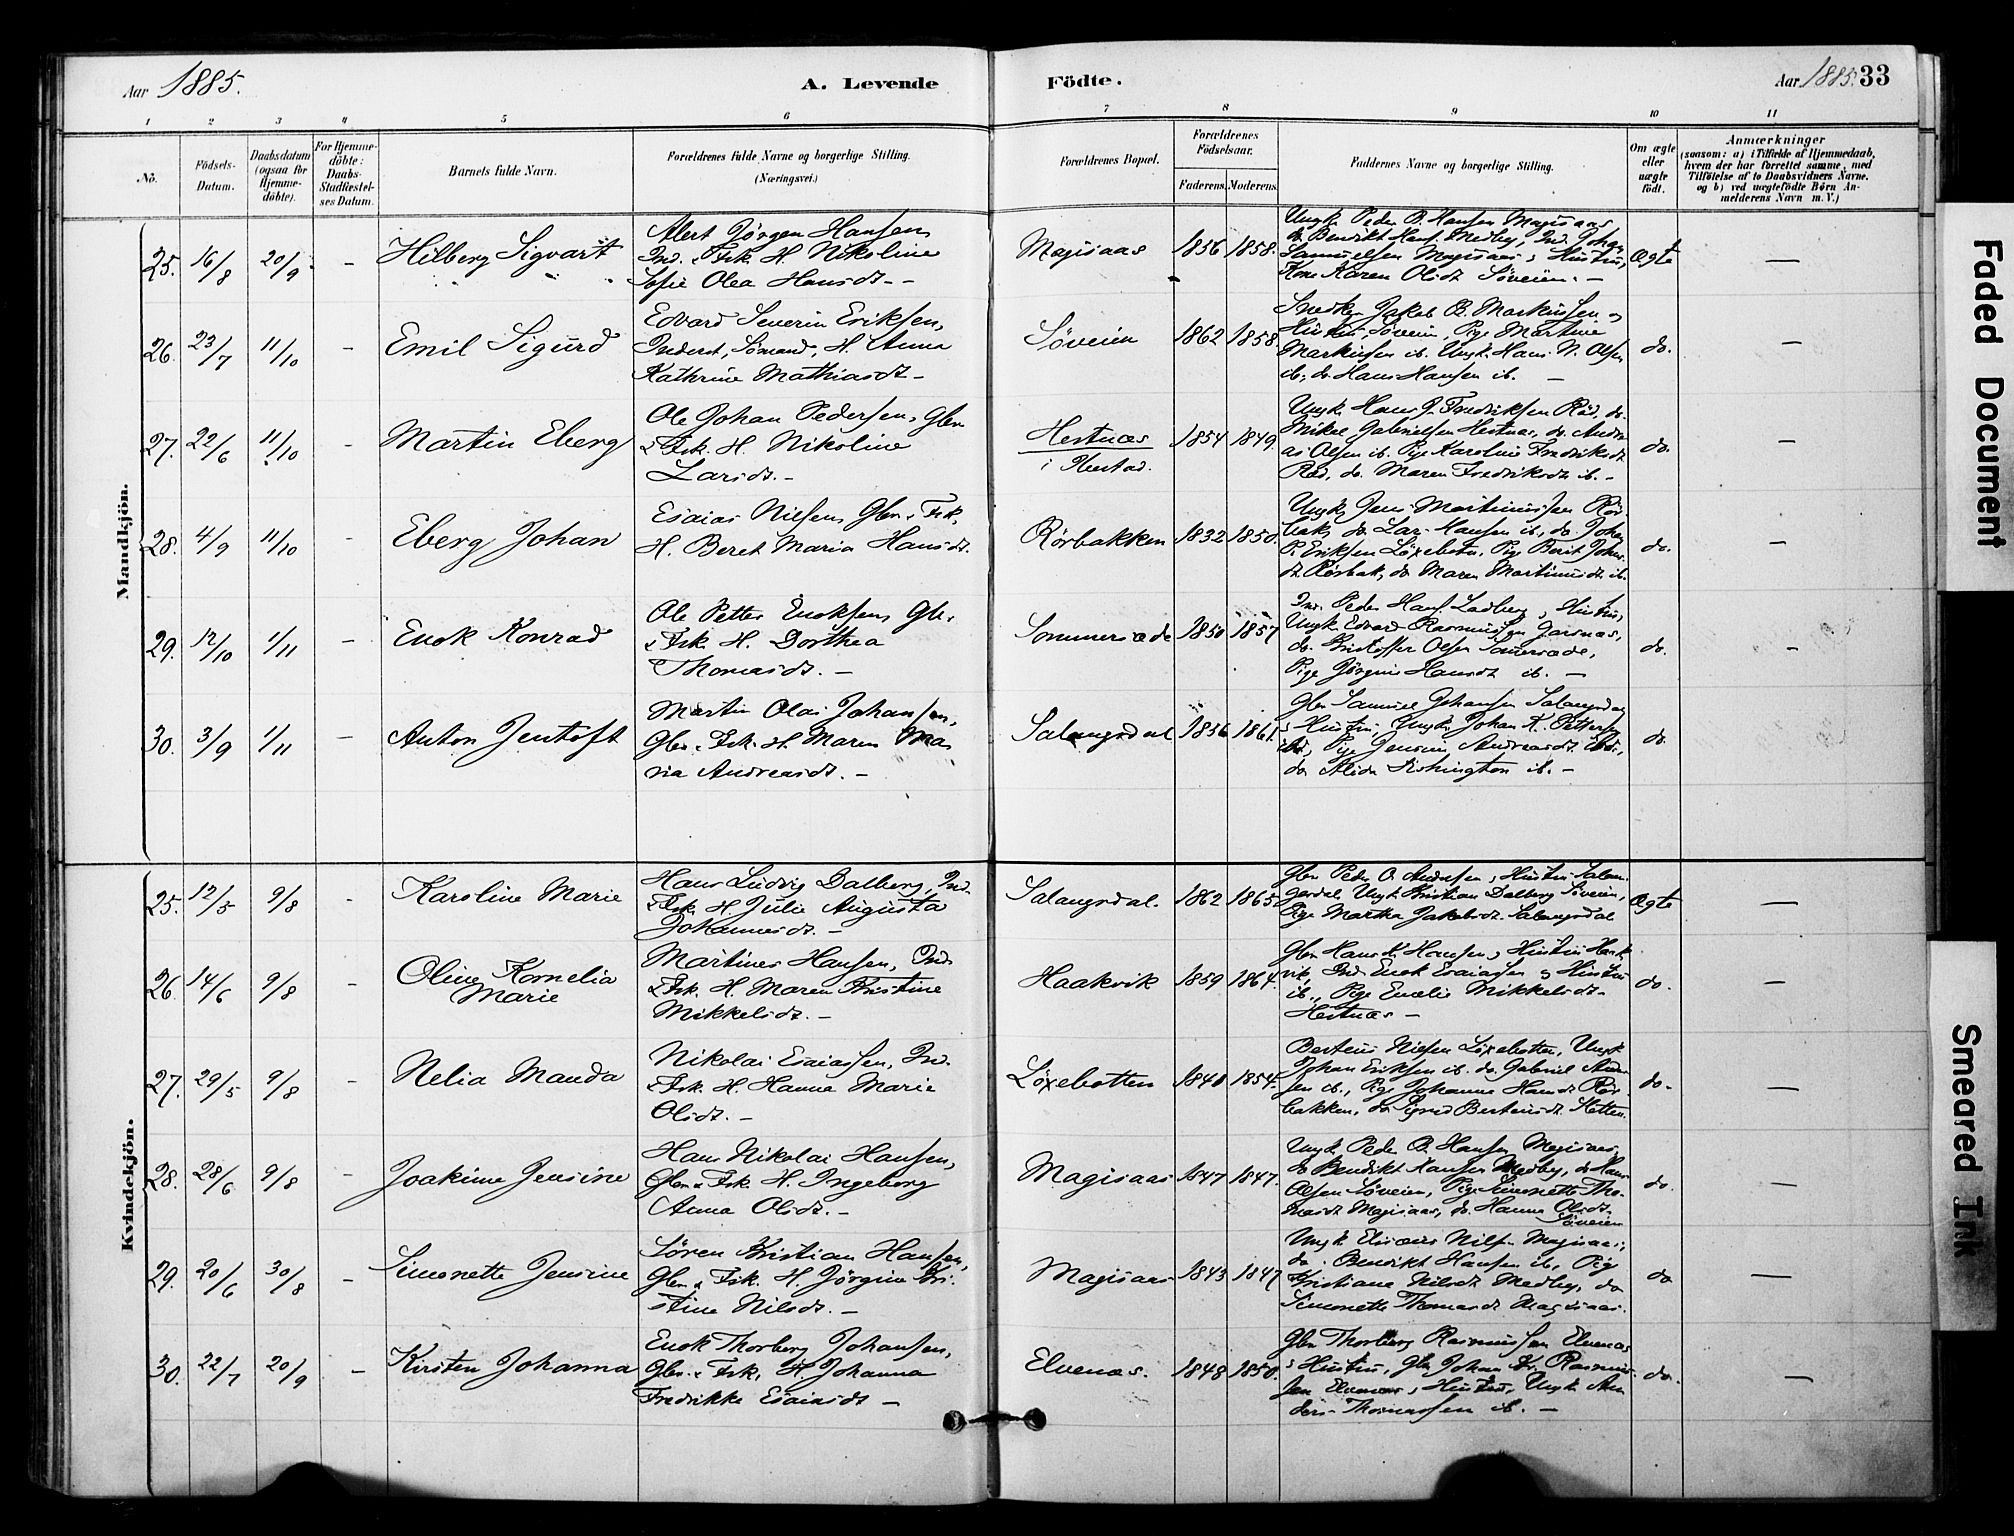 Aar 1885.
A. Levende
Födte.
Aar 1885. 33
1 2 3 4 5 6 7 8 9 10 11
No.
Födsels-
Datum.
Daabsdatum
(ogsaa for
Hjemme-
döbte).
For Hjemme-
döbte:
Daabs-
Stadfæstel-
ses Datum.
Barnets fulde Navn.
Forældrenes fulde Navne og borgerlige Stilling.
(Næringsvei.)
Forældrenes Bopæl.
Forældrenes
Födselsaar.
Faderens. Moderens.
Faddernes Navne og borgerlige Stilling.
Om ægte
eller
uægte
födt.
Anmærkninger
(saasom: a) i Tilfælde af Hjemmedaab,
hvem der har forrettet samme, med
Tilföielse af to Daabsvidners Navne,
og b) ved uægtefödte Börn An-
melderens Navn m. V.)
Mandkjön.
25. 16/8 20/9 - Hilberg Sigvart
Alert Jörgen Hansen,
Ind. & Fsk. H. Nikoline
Sofie Olea Hansdt. -
Magisaas 1856 1858.
Ungk. Peder B. Hansen Magisaas
do Benedikt Hans. Medby, Ind. Johan
Samuelsen Magisaas & Hustru,
Kone Karen Olsdt Söveien. -
Ægte -
26. 23/7 11/10 - Emil Sigurd
Edvard Severin Eriksen,
Inderst, Sömand, H. Anna
Kathrine Mathiasdt -
Söveien 1862 1858.
Snedker Jakob B. Markussen &
Hustru, Söveien, Pige Martine
Markussen ib. Ungk. Hans N. Olsen
ib., do. Hans Hansen ib. -
do. -
27. 22/6 11/10 - Martin Eberg
Ole Johan Pedersen, Gbr.
& Fsk. H. Nikoline
Larsdt. -
Hestnæs
i Ibestad.
1854 1849.
Ungk. Hans J. Fredriksen Röd, do.
Mikal Gabrielsen Hestnæs, do. Andre
as Olsen ib. Pige Karoline Fredriksdt
Röd, do. Maren Fredriksdt ib. -
do. -
28. 4/9 11/10 - Eberg Johan
Esaias Nilsen, Gbr. & Fsk.
H. Beret Maria Hansdt.
Rörbakken 1832 1850.
Ungk. Jens Martinussen Rör-
bak, do Lars Hansen ib., do Johan
P. Eriksen Löxebotn, Pig Berit Johns-
dt. Rörbak, do Maren Martinusdt. ib.
do. -
29. 12/10 1/11 - Enok Konrad
Ole Petter Enoksen, Gbr.
& Fsk. H. Dorthea
Thomasdt. -
Sommersæde 1850 1857
Ind. Peder Hans. Ladberg & Hustru,
Ungk. Edvard Rasmussen Garsnæs,
do. Kristoffer Olsen Somersæde,
Pige Jörgine Hansdt ib. -
do. -
30. 3/9 1/11 - Anton Jentoft
Martin Olai Johansen,
Gbr. & Fsk. H. Maren Ma
ria Andreasdt. -
Salangsdal 1856 1861.
Gbr Samuel Johansen Salangsdal
& Hustru, Ungk. Johan K. Pettersen
ibd., Pige Jensine Andreasdt ibd.,
do Alida Fishington ib. -
do.
Kvindekjön.
25. 12/5 9/8 - Karoline Marie
Hans Ludvig Dalberg, Ind.
& Fsk. H. Julie Augusta
Johannesdt. -
Salangsdal. 1862 1865.
Gbr Peder O. Andersen & Hustru Salan-
gsdal, Ungk. Kristian Dalberg Söveien,
Pige Martha Jakobsdt. Salangsdal
Ægte -
26. 14/6 9/8 - Oline Kornelia
Marie
Martines Hansen, Ind.
& Fsk. H. Maren Kristine
Mikkelsdt. -
Haakvik 1859 1864.
Gbr Hans K. Hansen & Hustru Haak
vik, Ind. Enok Esaiassen & Hustru
ib., Pige Emelie Mikkelsdt.
Hestnæs -
do. -
27. 29/5 9/8 - Nelia Manda
Nikolai Esaiassen, Ind.
& Fsk. H. Hanna Marie
Olsdt. -
Löxebotten 1840 1854.
Berteus Nilsen Löxebotten, Ungk.
Johan Eriksen ib. do. Gabriel Ander
sen ib., Pige Johanna Hansdt Rör-
bakken, do Sigrid Berteusdt. Kletten.
do. -
28. 28/6 9/8 - Joakime Jensine
Hans Nikolai Hansen,
Gbr. & Fsk. H. Ingeborg
Anna Olsdt. -
Magisaas 1847 1847.
Ungk. Peder B. Hansen Magisaas,
do Benedikt Hansen Medby, do Hans
Olsen Söveien, Pige Simonette Tho-
masdt Magisaas, do. Hanna Olsdt
Söveien
do. -
29. 20/6 30/8 - Simonette Jensine
Sören Kristian Hansen,
Gbr. & Fsk. H. Jörgine Kri-
stine Nilsdt. -
Magisaas 1843 1847
Ungk. Elisæus Nilsen Magisaas,
do. Benedikt Hansen ib., Pig
Kristiane Nilsdt Medby, do
Simonette Thomasdt Magisaas.
do -
30. 22/7 20/9 - Kirsten Johanna
Enok Thorberg Johansen,
Gbr. & Fsk. H. Johanna
Fredrikke Esaiasdt -
Elvenæs. 1848 1850.
Gbr Thorberg Rasmussen Elvenæs
& Hustru, Gbr Johan Kr. Rasmus-
sen Elvenæs & Hustru, Ungk. An
ders Thomassen ib. -
do. -
Faded Document
Smeared Ink